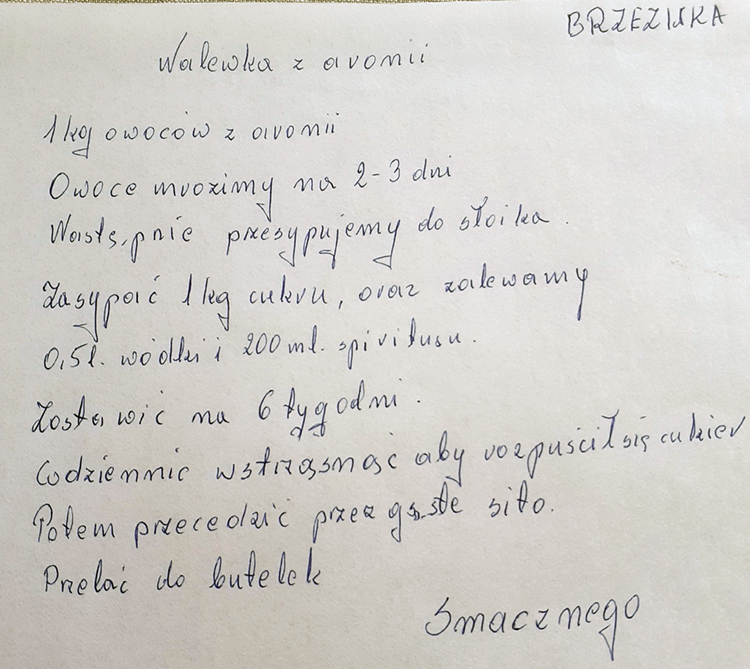 BRZEZINKA
Nalewka z aronii
1 kg owoców z aronii
Owoce mrozimy na 2-3 dni
Następnie przesypujemy do słoika.
Zasypać 1 kg cukru, oraz zalewamy
0,5l. wódki i 200 ml. spirytusu.
Zostawić na 6 tygodni.
Codziennie wstrząsnąć aby rozpuścił się cukier
Potem przecedzić przez gęste sito.
Przelać do butelek
Smacznego